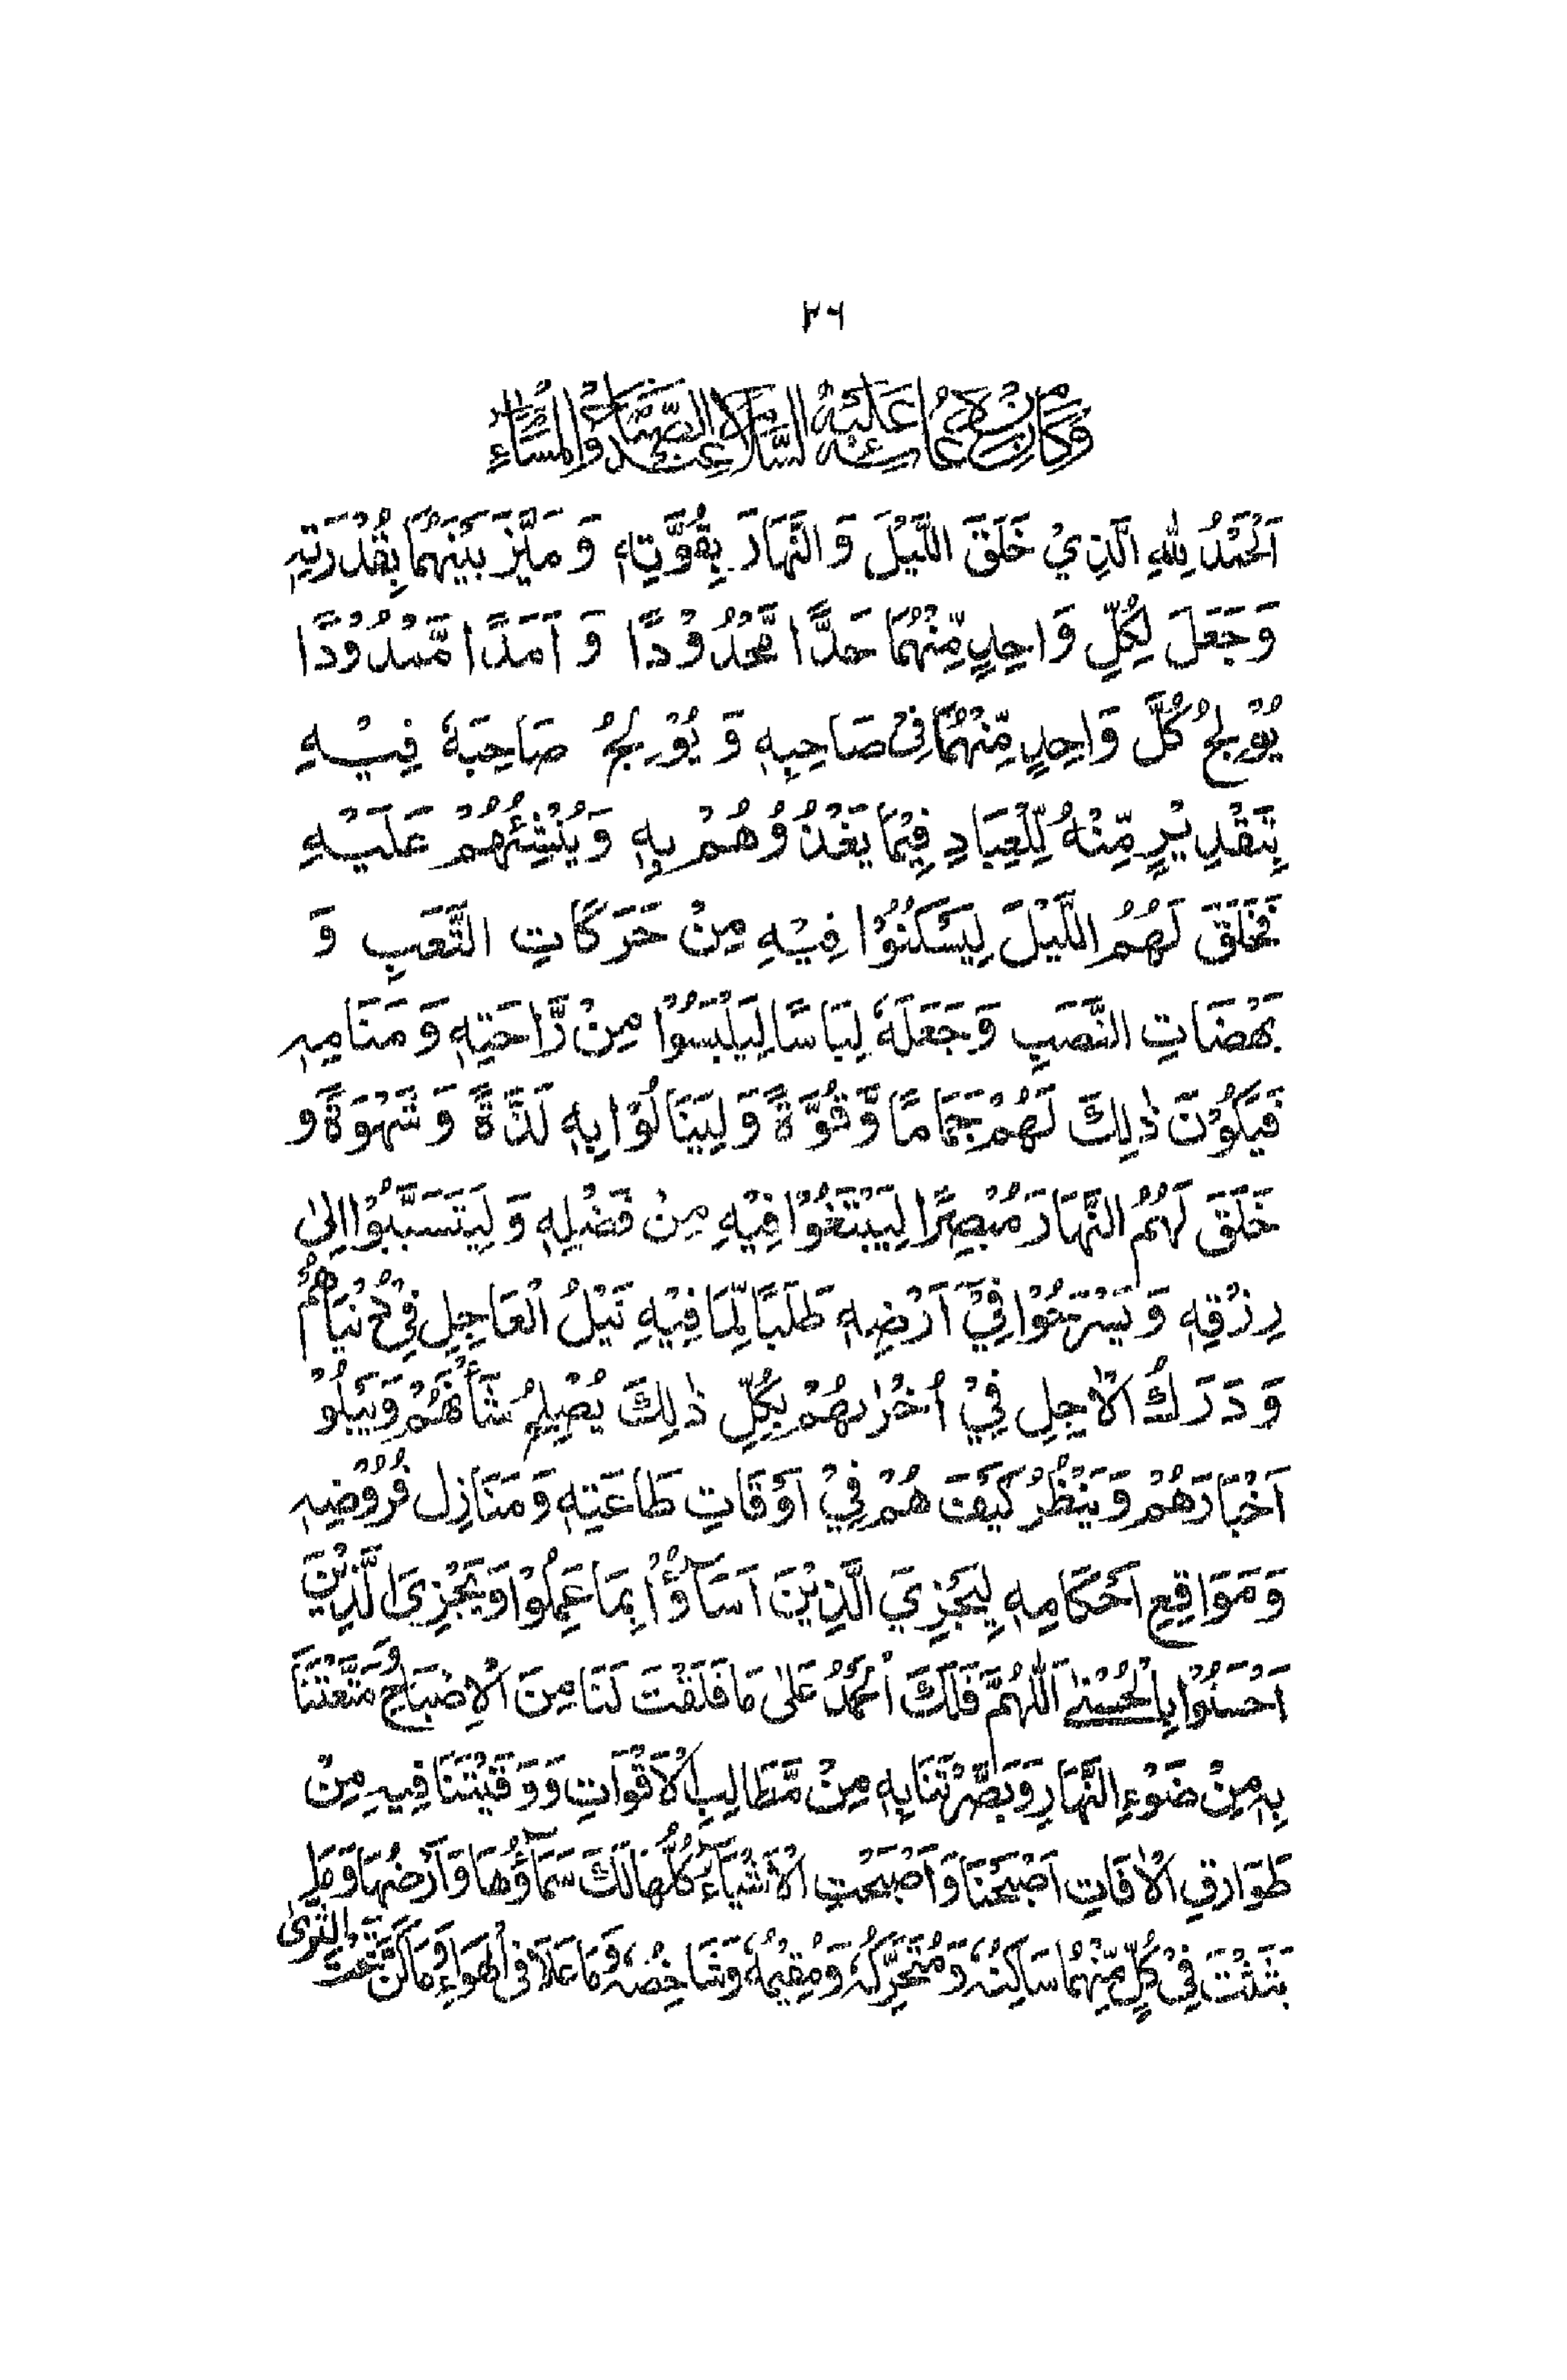 ٢٦
وَكَانَ مِنْ دُعَائِهِ عَلَيْهِ السَّلَامُ عِنْدَ الصَّبَاحِ وَالْمَسَاءِ
اَلْحَمْدُ لِلّٰهِ الَّذِيْ خَلَقَ اللَّيْلَ وَ النَّهَارَ بِقُوَّتِهٖ وَ مَيَّزَ بَيْنَهُمَا بِقُدْرَتِهٖ
وَ جَعَلَ لِكُلِّ وَاحِدٍ مِّنْهُمَا حَدًّا مَّحْدُوْدًا وَ اَمَدًا مَّمْدُوْدًا
يُوْلِجُ كُلَّ وَاحِدٍ مِّنْهُمَا فِیْ صَاحِبِهٖ وَ يُوْلِجُ صَاحِبَهٗ فِيْهِ
بِتَقْدِيْرٍ مِّنْهُ لِلْعِبَادِ فِيْمَا يَغْذُوْهُمْ بِهٖ وَ يُنْشِئُهُمْ عَلَيْهِ
فَخَلَقَ لَهُمُ اللَّيْلَ لِيَسْكُنُوْا فِيْهِ مِنْ حَرَكَاتِ التَّعَبِ وَ
نَهْضَاتِ النَّصَبِ وَ جَعَلَهٗ لِبَاسًا لِيَلْبَسُوْا مِنْ رَّاحَتِهٖ وَ مَنَامِهٖ
فَيَكُوْنَ ذٰلِكَ لَهُمْ جَمَامًا وَّ قُوَّةً وَ لِيَنَالُوْا بِهٖ لَذَّةً وَ شَهْوَةً وَ
خَلَقَ لَهُمُ النَّهَارَ مُبْصِرًا لِيَبْتَغُوْا فِيْهِ مِنْ فَضْلِهٖ وَ لِيَتَسَبَّبُوْا اِلىٰ
رِزْقِهٖ وَ يَسْرَحُوْا فِيْ اَرْضِهٖ طَلَبًا لِّمَا فِيْهِ نَيْلُ الْعَاجِلِ فِيْ دُنْيَاهُمْ
وَ دَرَكُ الْاٰجِلِ فِيْ اُخْرٰىهُمْ بِكُلِّ ذٰلِكَ يُصْلِحُ شَاْنَهُمْ وَ يَبْلُوْ
اَخْبَارَهُمْ وَ يَنْظُرُ كَيْفَ هُمْ فِيْ اَوْقَاتِ طَاعَتِهٖ وَ مَنَازِلِ فُرُوْضِهٖ
وَ مَوَاقِعِ اَحْكَامِهٖ لِيَجْزِيَ الَّذِيْنَ اَسَاؤُا بِمَا عَمِلُوْا وَ يَجْزِيَ الَّذِيْنَ
اَحْسَنُوْا بِالْحُسْنىٰ اَللّٰهُمَّ فَلَكَ الْحَمْدُ عَلىٰ مَا فَلَقْتَ لَنَا مِنَ الْاِصْبَاحِ وَ مَتَّعْتَنَا
بِهٖ مِنْ ضَوْءِ النَّهَارِ وَ بَصَّرْتَنَا بِهٖ مِنْ مَّطَالِبِ الْاَقْوَاتِ وَ وَقَيْتَنَا فِيهِ مِنْ
طَوَارِقِ الْاٰفَاتِ اَصْبَحْنَا وَ اَصْبَحَتِ الْاَشْيَاءُ كُلُّهَا لَكَ سَمَاؤُهَا وَ اَرْضُهَا وَ مَا
بَثَثْتَ فِيْ كُلِّ مِّنْهُمَا سَاكِنُهٗ وَ مُتَحَرِّكُهٗ وَ مُقِيْمُهٗ وَ شَاخِصُهٗ وَ مَا عَلَا فِی الْهَوَاءِ وَ مَا كَنَّ تَحْتَ الثَّرىٰ